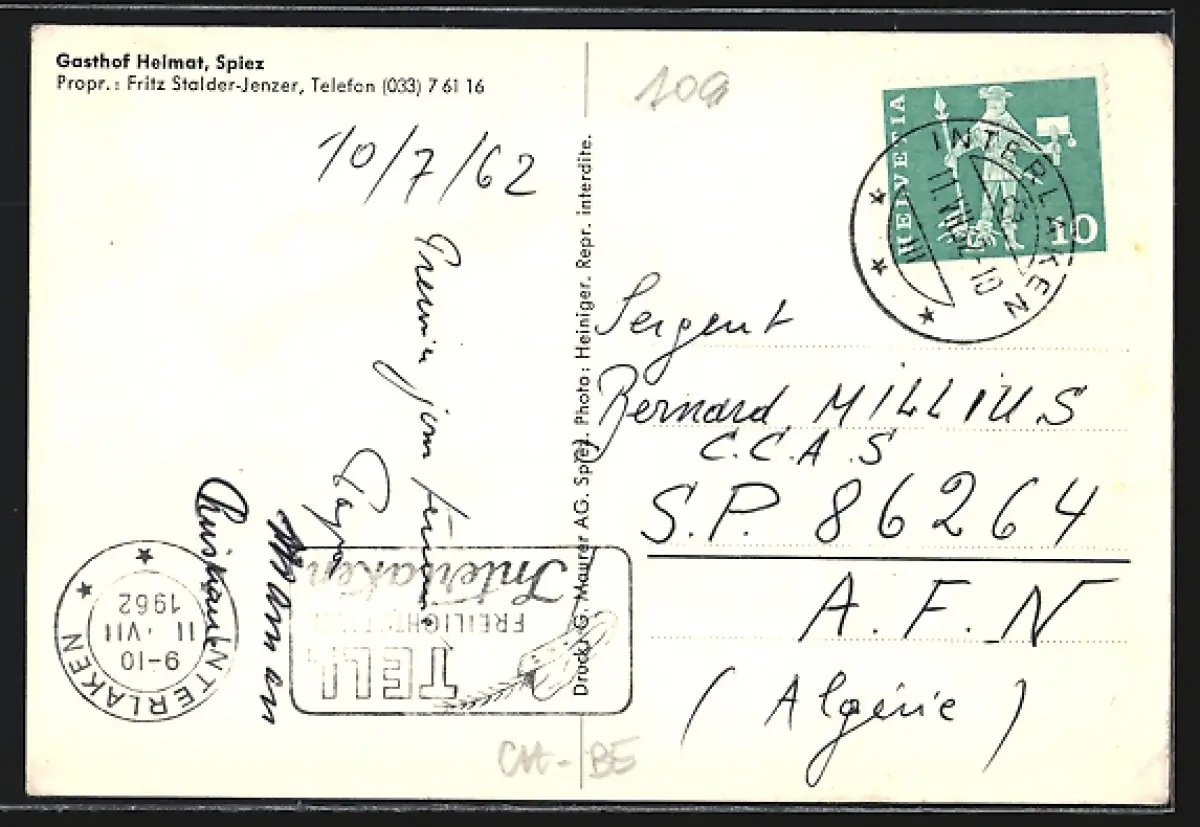 Gasthof Heimat, Spiez
Propr.: Fritz Stalder-Jenzer, Telefon (033) 7 61 16
10/7/62
Papa
Maman
Christiane
Druck: G. Maurer AG. Spiez. Photo: Heiniger. Repr. interdite.
109
HELVETIA
10
INTERLAKEN
11.VII.62-10
Sergent
Bernard MILLIUS
C.C.A.S
S.P. 86264
A.F.N
(Algérie)
INTERLAKEN
9-10
11.VII
1962
TELL
FREILICHTSPIELE
Interlaken
CH-BE